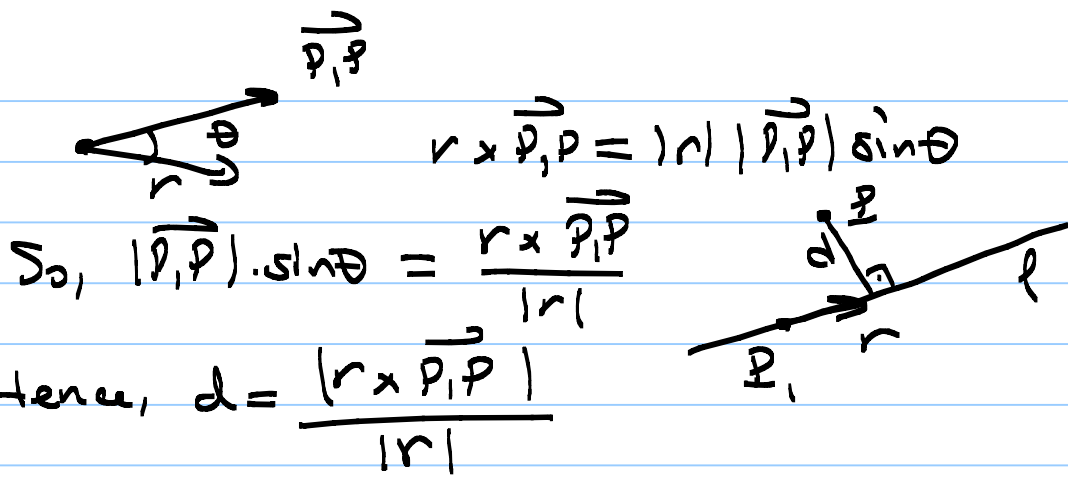 P₁P
θ
r
r × P₁P = |r| |P₁P| sinθ
So, |P₁P|.sinθ = r × P₁P / |r|
P
d
l
r
P₁
Hence, d = |r × P₁P| / |r|